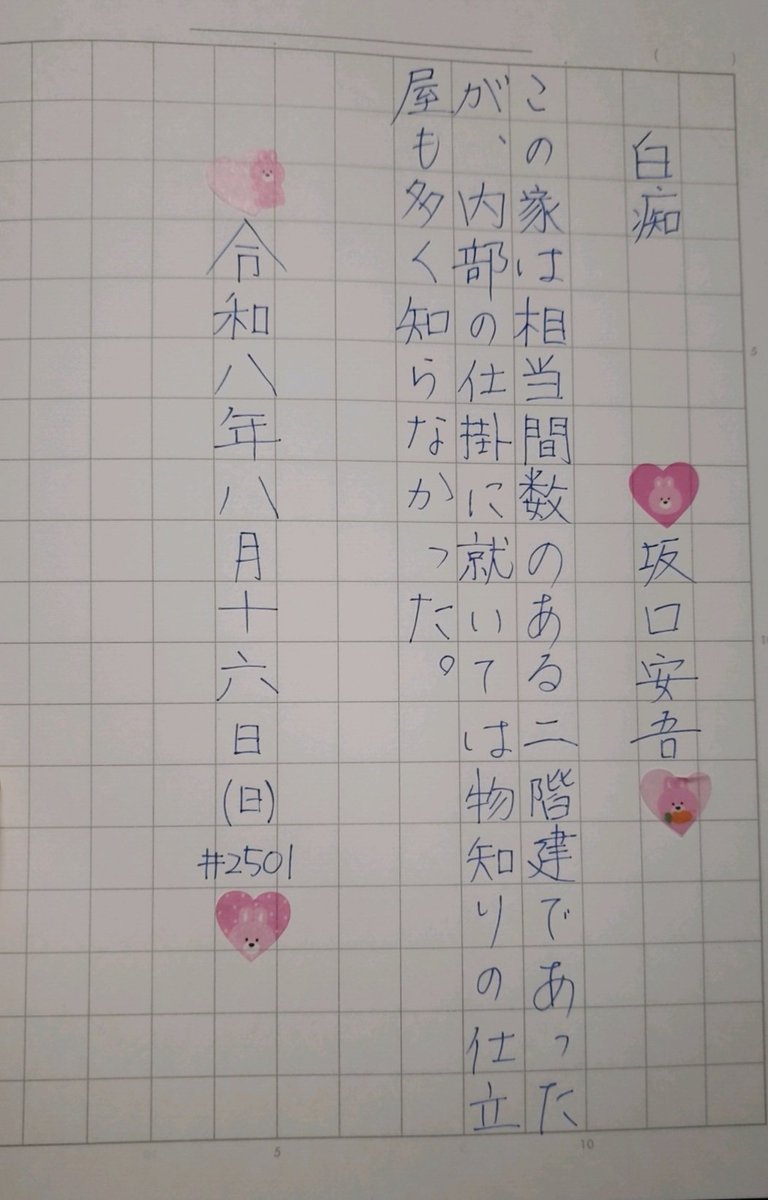 白痴 坂口安吾
この家は相当間数のある二階建であった
が、内部の仕掛に就いては物知りの仕立
屋も多く知らなかった。
令和八年八月十六日(日)#2501
5
10
5
10